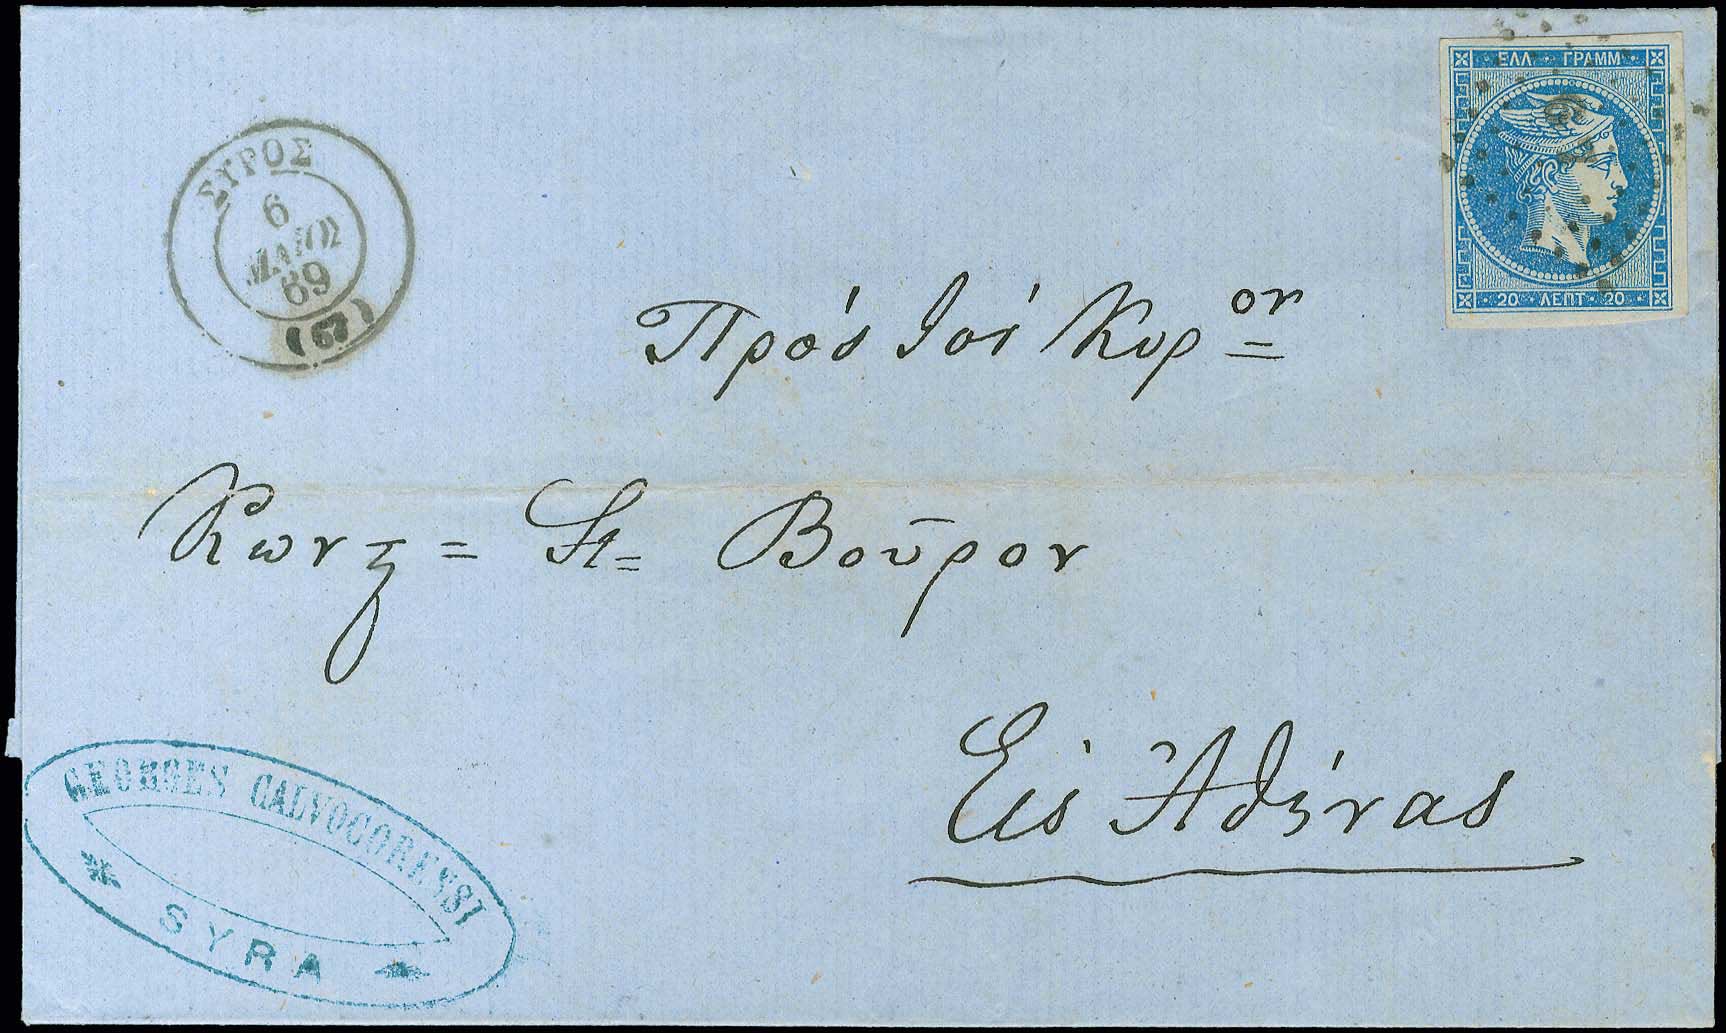 ΕΛΛ· ΓΡΑΜΜ·
20 · ΛΕΠΤ · 20
ΣΥΡΟΣ
6
ΜΑΪΟΣ
69
(67)
Πρός τόν Κύρ ον
Κωνς = Στ = Βοῦρον
Εἰς Ἀθήνας
GEORGES CALVOCORESSI
SYRA